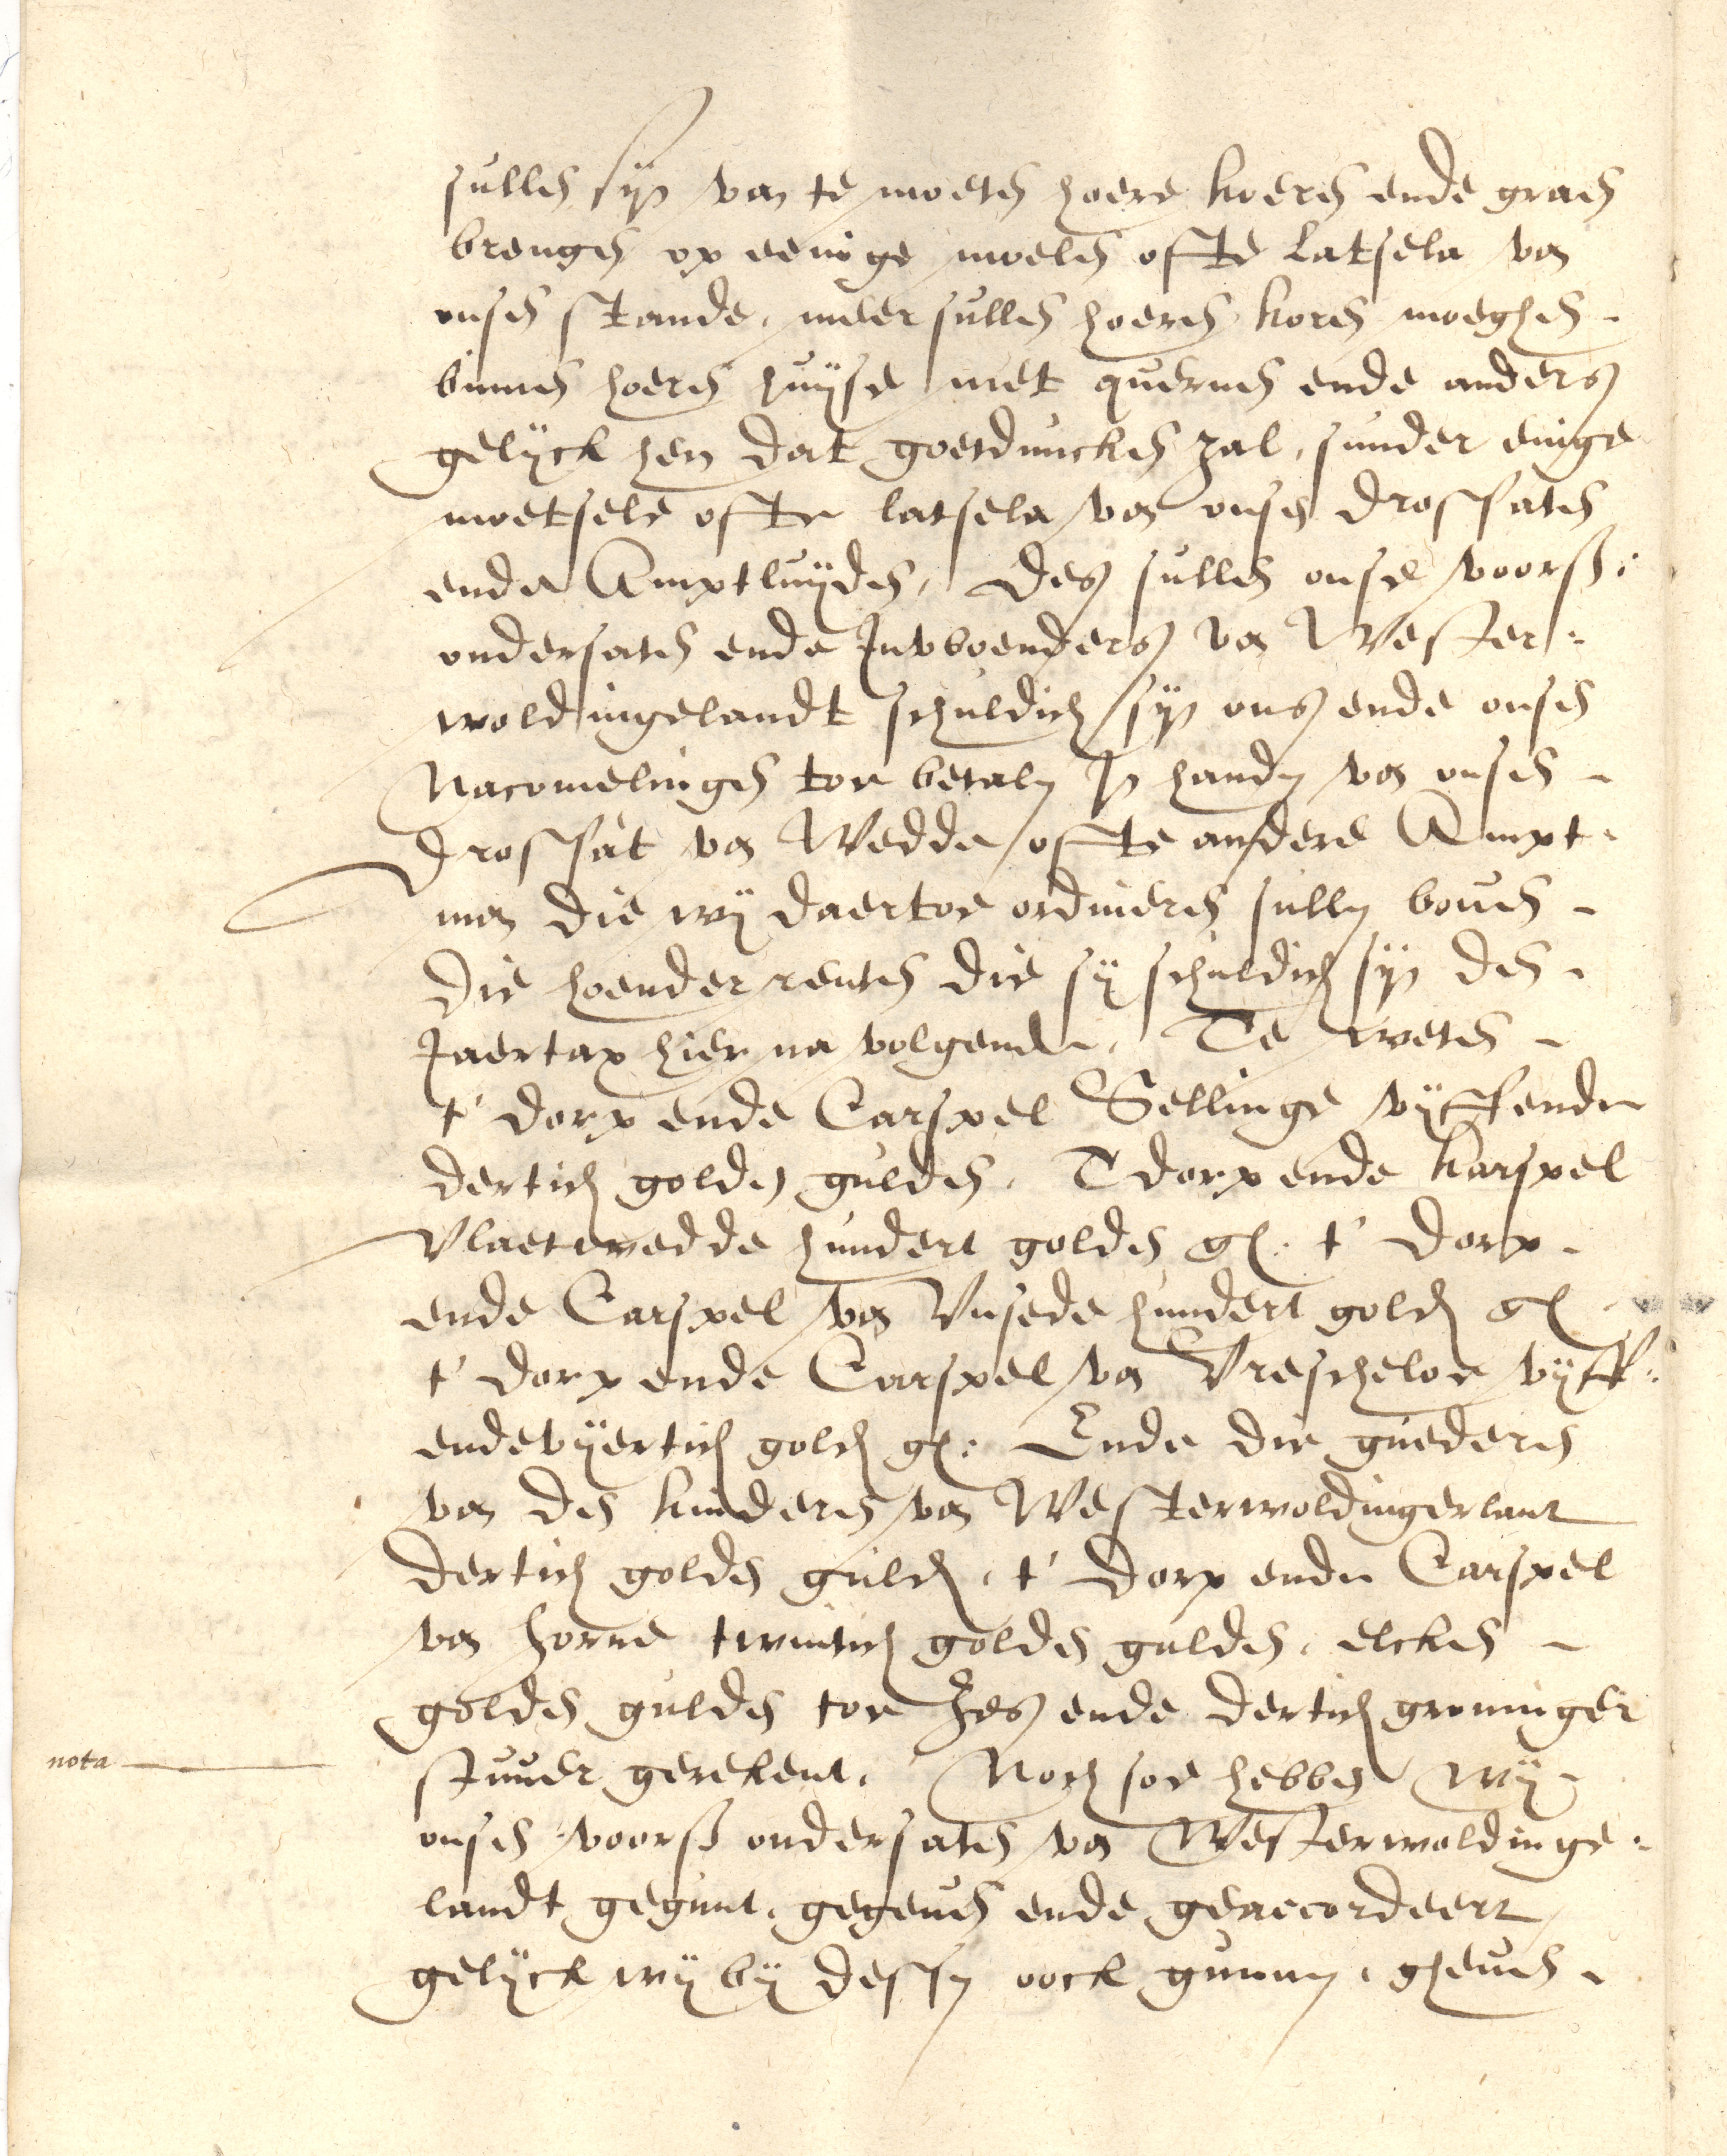 sullen sijn van te moeten hoere koeren ende graen
brengen op eenige moelen ofte Latsela van
onsen stande, meer sullen hoeren koren moeghen
binnen hoeren huijse met quernen ende anders
gelijck hen dat goetduncken zal, sunder einige
moetsele ofte latsela van onsen drossaten
ende Amptluijden, Des sullen onse voorß:
ondersaten ende Inwoenders van Wester:
woldingelandt schuldich sijn ons ende onsen
Nacomelingen toe betalen In handen van onsen
drossat van Wedde ofte andere Ampt
man die wij daertoe ordineren sullen boven
die hoender renten die sij schuldich sijn den
Jaertax hier na volgende, Te weten
t' dorp ende Carspel Sellinge vijffende
dertich golden gulden, T dorp ende karspel
Vlaetwedde hundert golden gl. t' dorp
ende Carspel van Unsede hundert golden gl
t' dorp ende Carspel van Vriescheloe vijff:
endevijertich golden gl: Ende die guederen
van den kinderen van Westerwoldingerlant
dertich golden gulden, t' dorp ende Carspel
van horne twintich golden gulden, elcken
golden gulden toe Zes ende dertich groninger
nota
stuver gerekent, Noch soe hebben wij
onsen voorß ondersaten van Westerwoldinge
landt gegunt, gegeven ende geaccordeert
gelijck wij bij dessen oock gunnen, gheven